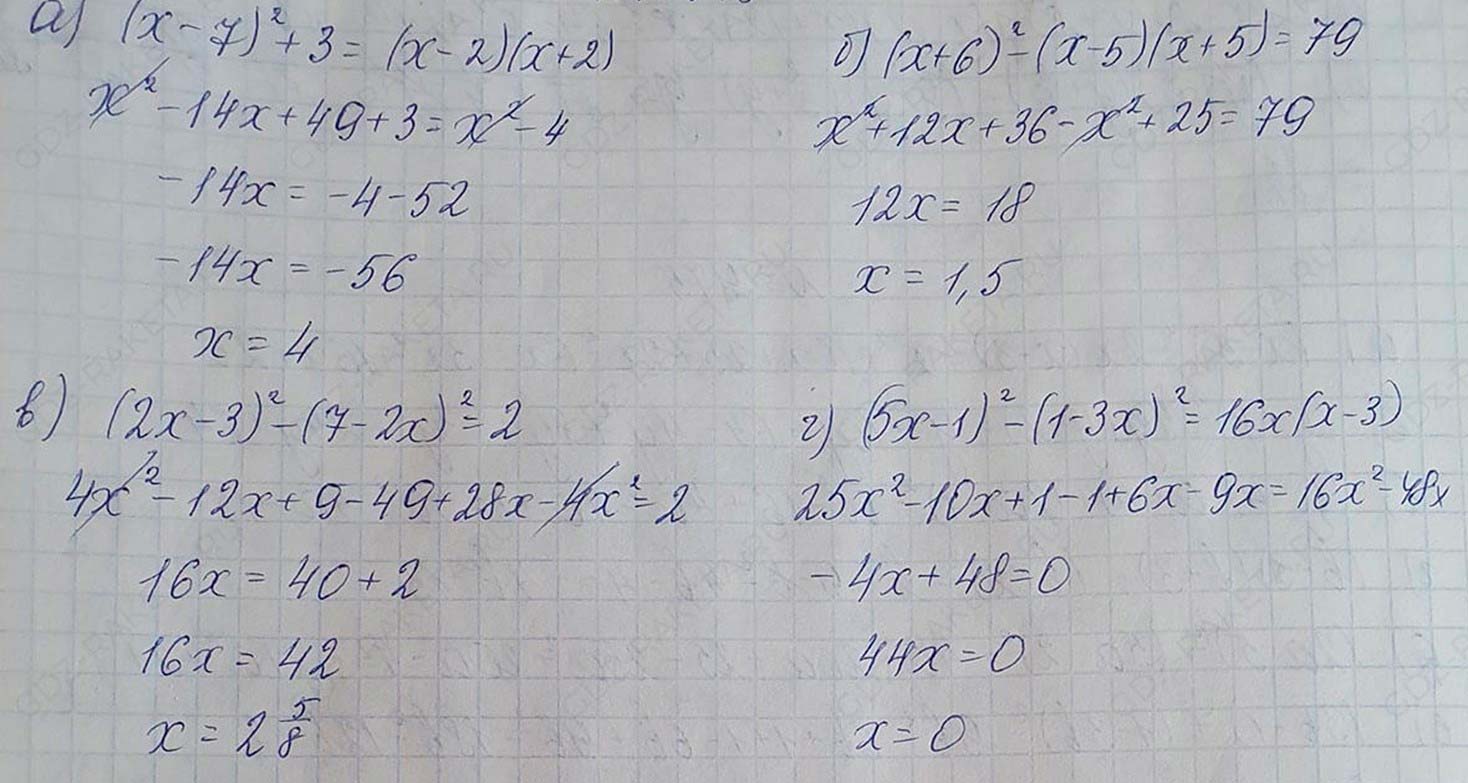 а) (x-7)²+3=(x-2)(x+2)
x²-14x+49+3=x²-4
-14x=-4-52
-14x=-56
x=4
б) (x+6)²-(x-5)(x+5)=79
x²+12x+36-x²+25=79
12x=18
x=1,5
в) (2x-3)²-(7-2x)²=2
4x²-12x+9-49+28x-4x²=2
16x=40+2
16x=42
x=2 5/8
г) (5x-1)²-(1-3x)²=16x(x-3)
25x²-10x+1-1+6x-9x=16x²-48x
-4x+48=0
44x=0
x=0